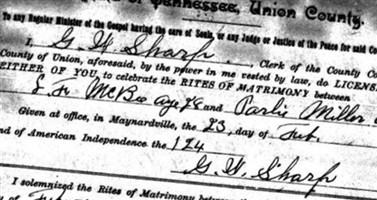 of Tennessee, Union County.
To any Regular Minister of the Gospel having the care of Souls, or any Judge or Justice of the Peace for said Co
I, G. W. Sharp, Clerk of the County Co
County of Union, aforesaid, by the power in me vested by law, do LICENS
EITHER OF YOU, to celebrate the RITES OF MATRIMONY between
McBee Age 28 and Parlie Miller
Given at office, in Maynardville, the 23, day of Feb.
nd of American Independence the 124
G. W. Sharp
I solemnized the Rites of Matrimony between the